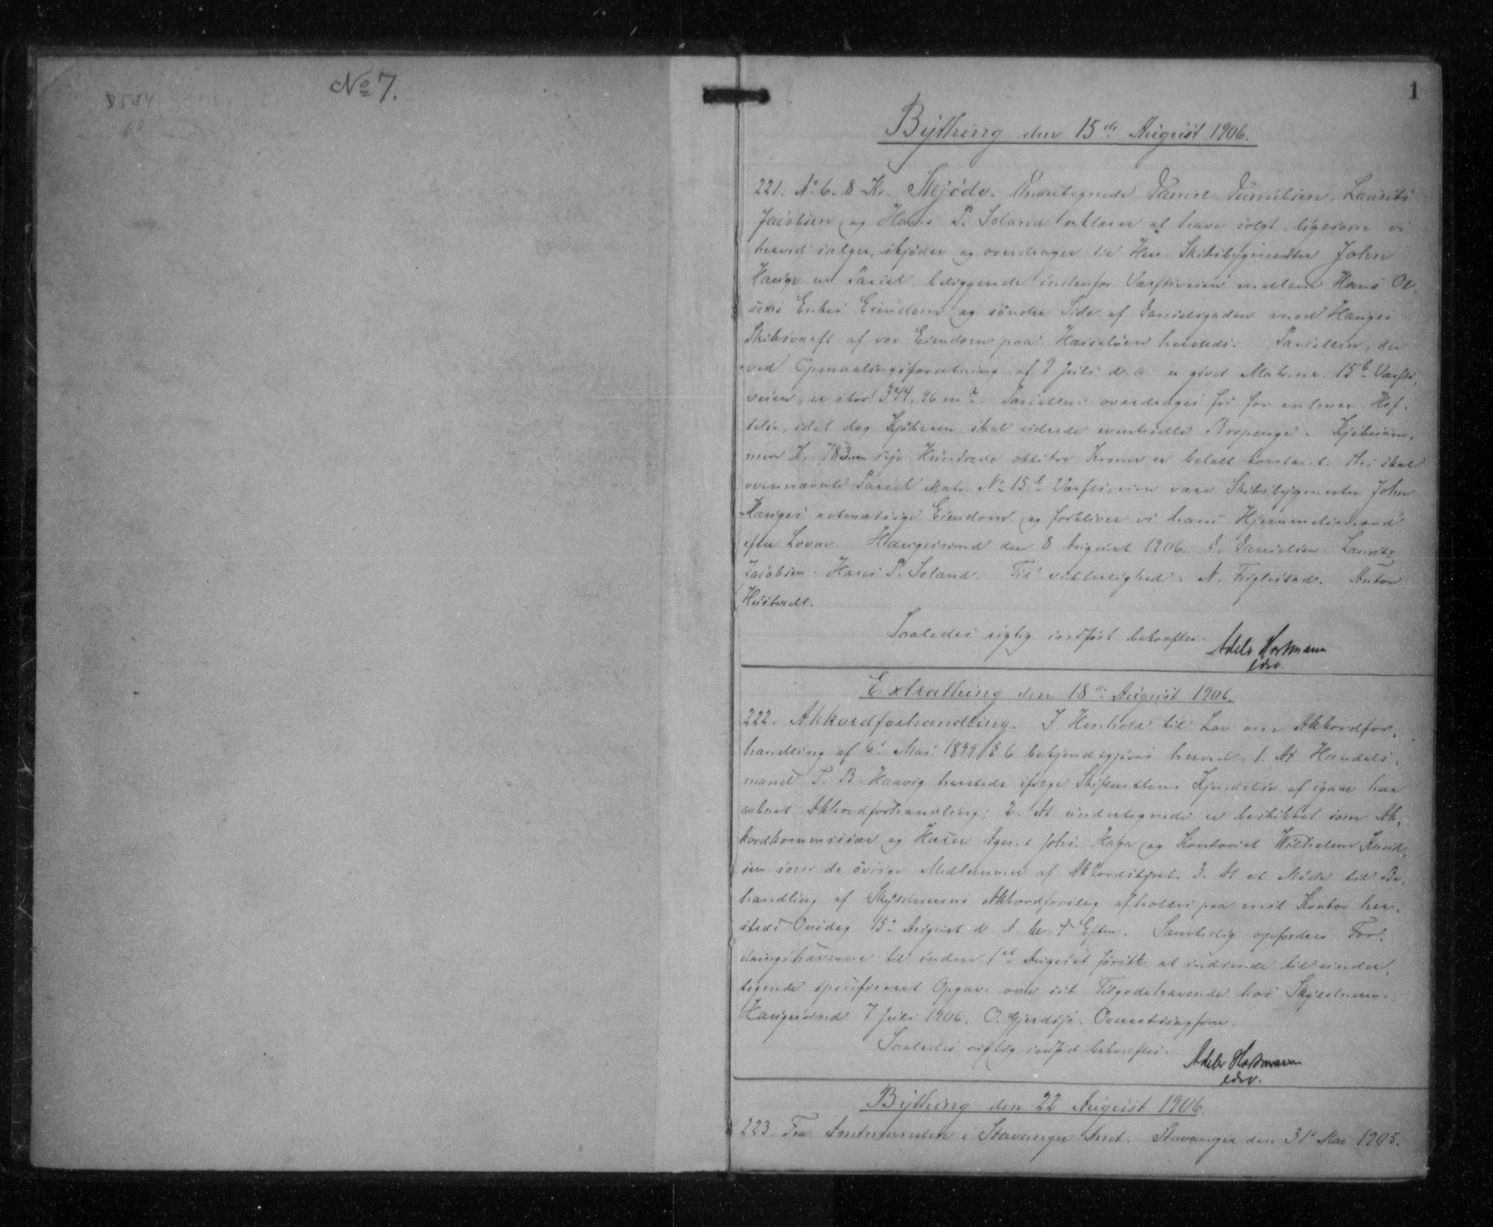 No 7.
8584
60
1
Bything den 15de August 1906.
221. No 6. 8 Kr. Skjøde. Undertegnede Daniel Danielsen, Laurits
Jacobsen og Hans P. Soland erklærer at have solgt, ligesom vi
herved sælger, skjøder og overdrager til Herr Skibsbygmester John
Hauge en Parcel beliggende indenfor Værftsveien mellem Hans Ol-
sens Enkes Eiendom og søndre Side af Danielsgaden mod Hauges
Skibsværft af vor Eiendom paa Hasseløen hersteds. Parcellen, der
ved Opmaalingsforretning af 9 Juli d. a. er givet Matr. nr. 15b Værfts-
veien, er stor 344,96 m2. Parcellen overdrages fri for enhver Hef-
telse, idet dog Kjøberen skal udrede eventuelle Brøpenge. Kjøbesum-
men Kr. 783 syv Hundrede ottitre Kroner er betalt kontant. Thi skal
ovennævnte Parcel Matr. No 15b Værftsveien være Skibsbygmester John
Hauges retmæssige Eiendom og forbliver vi hans Hjemmelsmænd
efter Loven. Haugesund den 8 August 1906. D. Danielsen. Laurits
Jacobsen. Hans P. Soland. Til vitterlighed: N. Anton
Husstvedt.
Saaledes rigtig indført bekræftes.
Adele Hartmann
edsv.
Extrathing den 18de August 1906.
222. Akkordforhandling. I Henhold til Lov om Akkordfor-
handling af 6te Mai 1899 § 6 bekjendtgjøres herved: 1. At Handels-
mand T. B. Haavig hersteds ifølge Skifterettens Kjendelse af igaar har
aabnet Akkordforhandling; 2. At undertegnede er beskikket som Ak-
kordkommissær og Herrer Agent Johs. Haga og Kontorist Wilhelm Knud-
sen som de øvrige Medlemmer af Akkordstyret. 3. At et Møde til Be-
handling af Skyldnerens Akkordforslag afholdes paa mit Kontor her-
steds Onsdag 15de August d. A. kl. 4 Efterm. Samtidig opfordres For-
dringshaverne til inden 1ste August førstk. at indsende til under-
tegnede specificeret Opgave over sit Tilgodehavende hos Skyldneren.
Haugesund 7 Juli 1906. O. Gjerdsjø. Overretssagfører.
Saaledes rigtig indført bekræftes.
Adele Hartmann
edsv.
Bything den 22 August 1906
223. Fra Amtmanden i Stavanger Amt. Stavanger den 31te Mai 1905.